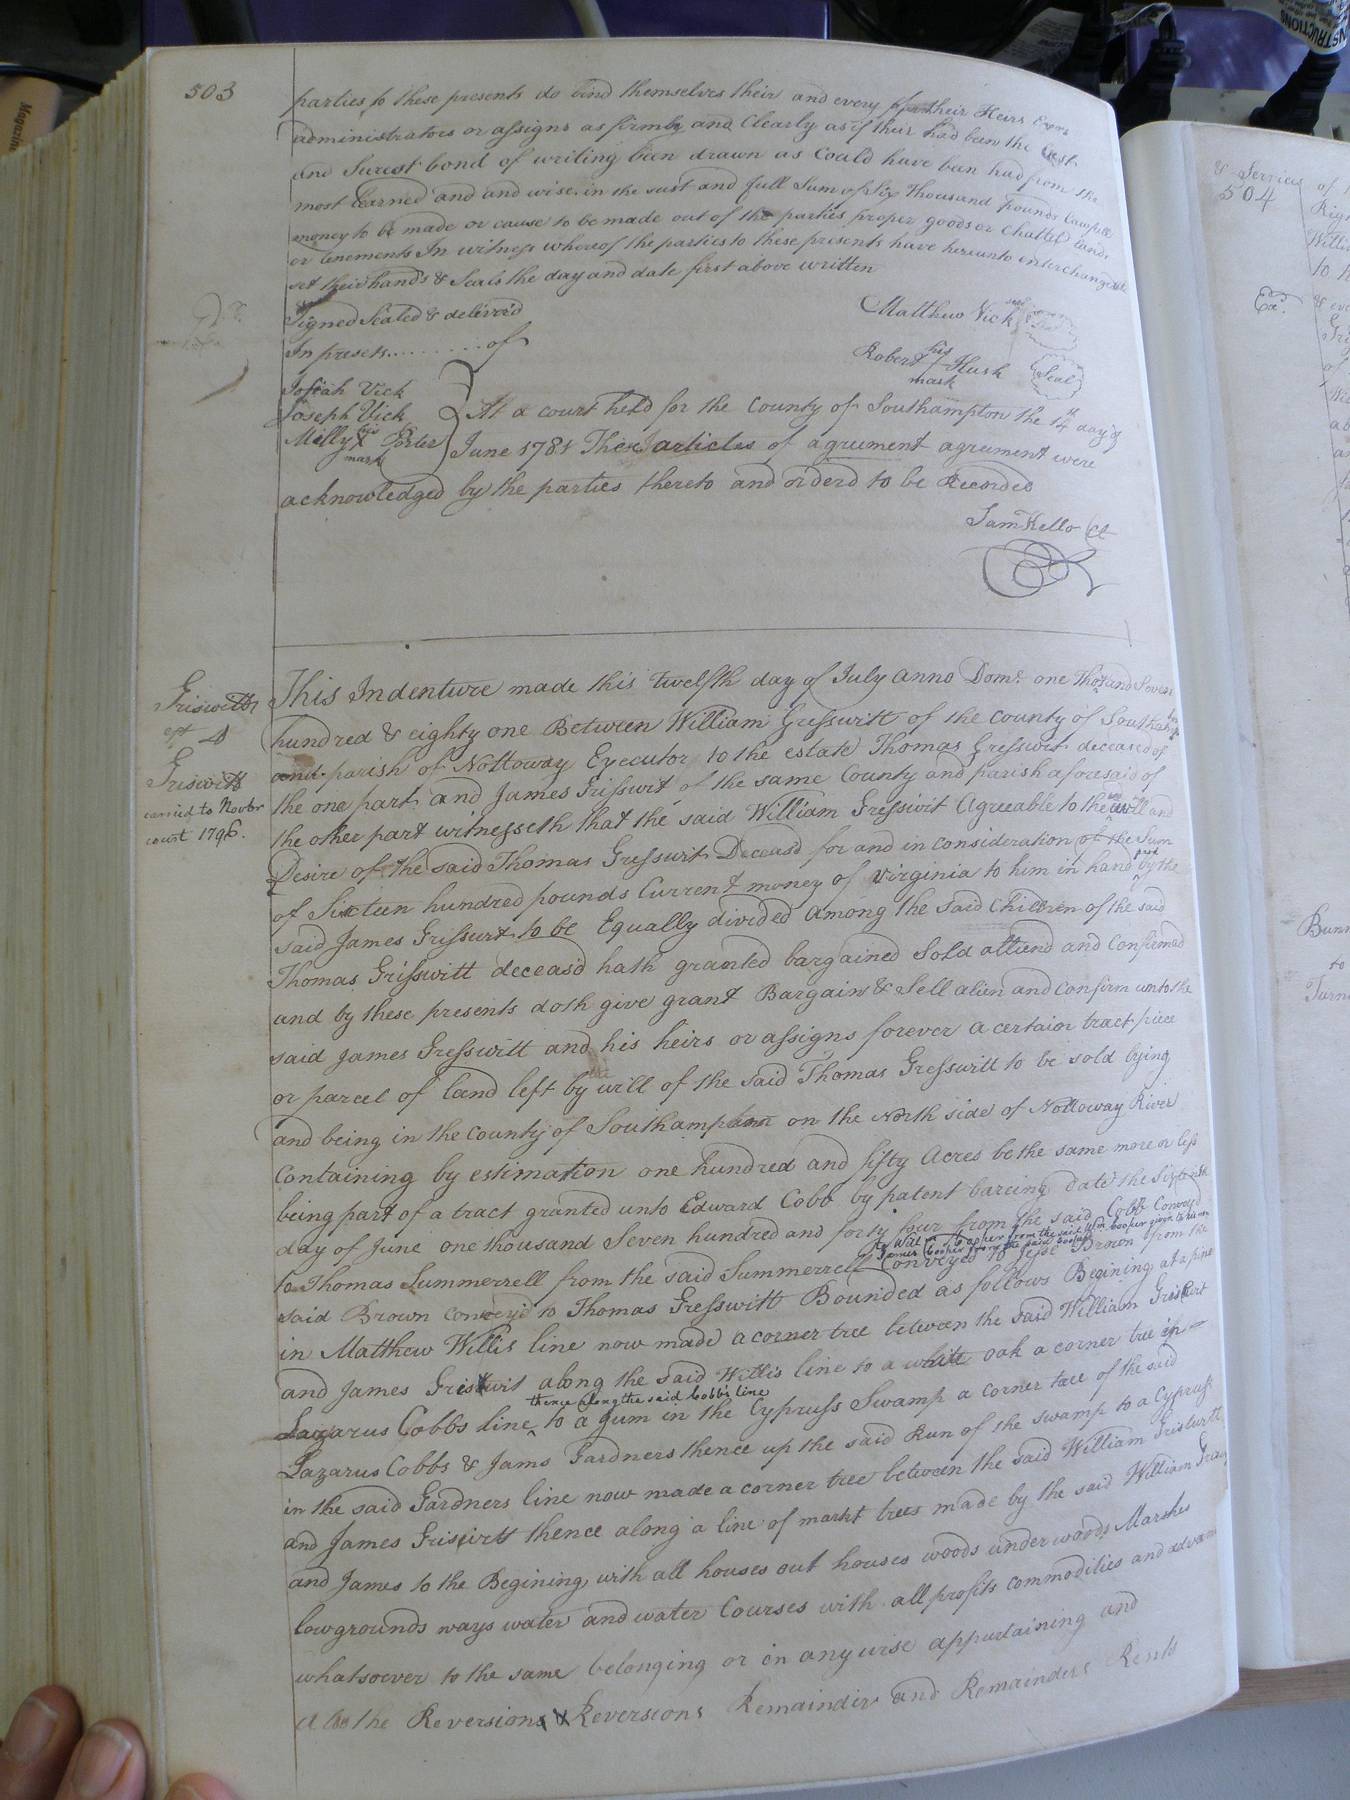 503
parties to these presents do bind themselves their and every of their Heirs Exors
administrators or assigns as firmly and Clearly as if their had been the best
and Surest bond of writing been drawn as Could have been had from the
most Learned and and wise. in the Just and full Sum of Six Thousand pounds Lawfull
money to be made or cause to be made out of the parties proper goods or Chattels Lands
or tenements In witness whereof the parties to these presents have hereunto interchangeable
set their hands & Seals the day and date first above written
Signed Sealed & deliver'd
In presets......... of
Matthew Vick seal
Robert his Husk Seal
mark
Josiah Vick
Joseph Vick
Milly his Porter
mark
At a court held for the County of Southampton the 14th day of
June 1781 These articles of agrument agrument were
acknowledged by the parties thereto and orderd to be Recorded
Saml Kello Ct
Griswitt
ext D
Griswitt
carried to Novbr
court 1796.
This Indenture made this twelfth day of July anno Dom: one Thousand Seven
hundred & eighty one Between William Gresswitt of the County of Southampton
and parish of Nottoway Executor to the estate Thomas Gresswit deceased of
the one part and James Grisswit of the same County and parish aforesaid of
the other part witnesseth that the said William Gresswit Agreeable to the will and
Desire of the said Thomas Gresswit Deceasd for and in consideration of the Sum
of Sixteen hundred pounds Current money of Virginia to him in hand paid by the
said James Grissurt to be Equally divided among the said Children of the said
Thomas Grisswitt deceas'd hath granted bargained Sold aliend and Confirmed
and by these presents doth give grant Bargain & Sell alien and Confirm unto the
said James Gresswitt and his heirs or assigns forever a certain tract piece
or parcel of land left by will of the said Thomas Gresswitt to be sold lying
and being in the County of Southampton on the North side of Nottoway River
Containing by estimation one hundred and fifty Acres be the same more or less
being part of a tract granted unto Edward Cobb by patent bareing date the Sixteenth
day of June one thousand Seven hundred and forty four from the said Cobb Convey'd
to Will m booper from the said Wm booper given to his son
James booper from the said booper
to Thomas Summerrell from the said Summerrell Conveyed to Jesse Brown from the
said Brown convey'd to Thomas Gresswitt Bounded as follows Begining at a pine
in Matthew Willis line now made a corner tree between the said William Griswirt
and James Griswit along the said Willis line to a white oak a corner tree in
thence along the said Cobbs line
Lazarus Cobbs line ^ to a gum in the Cypruss Swamp a corner tree of the said
Lazarus Cobbs & Jams Gardners thence up the said Run of the swamp to a Cypruss
in the said Gardners line now made a corner tree between the said William Griswitt
and James Griswitt thence along a line of markt trees made by the said William Gray
and James to the Begining with all houses out houses woods under woods Marshes
lowgrounds ways water and water Courses with all profits commodities and advan
whatsoever to the same belonging or in any wise appurtaining and
also the Reversion & Reversions Remainder and Remainders Rents
504
& Services of
Righ
Willi
to h
Ex.
Bunn
to
Turne